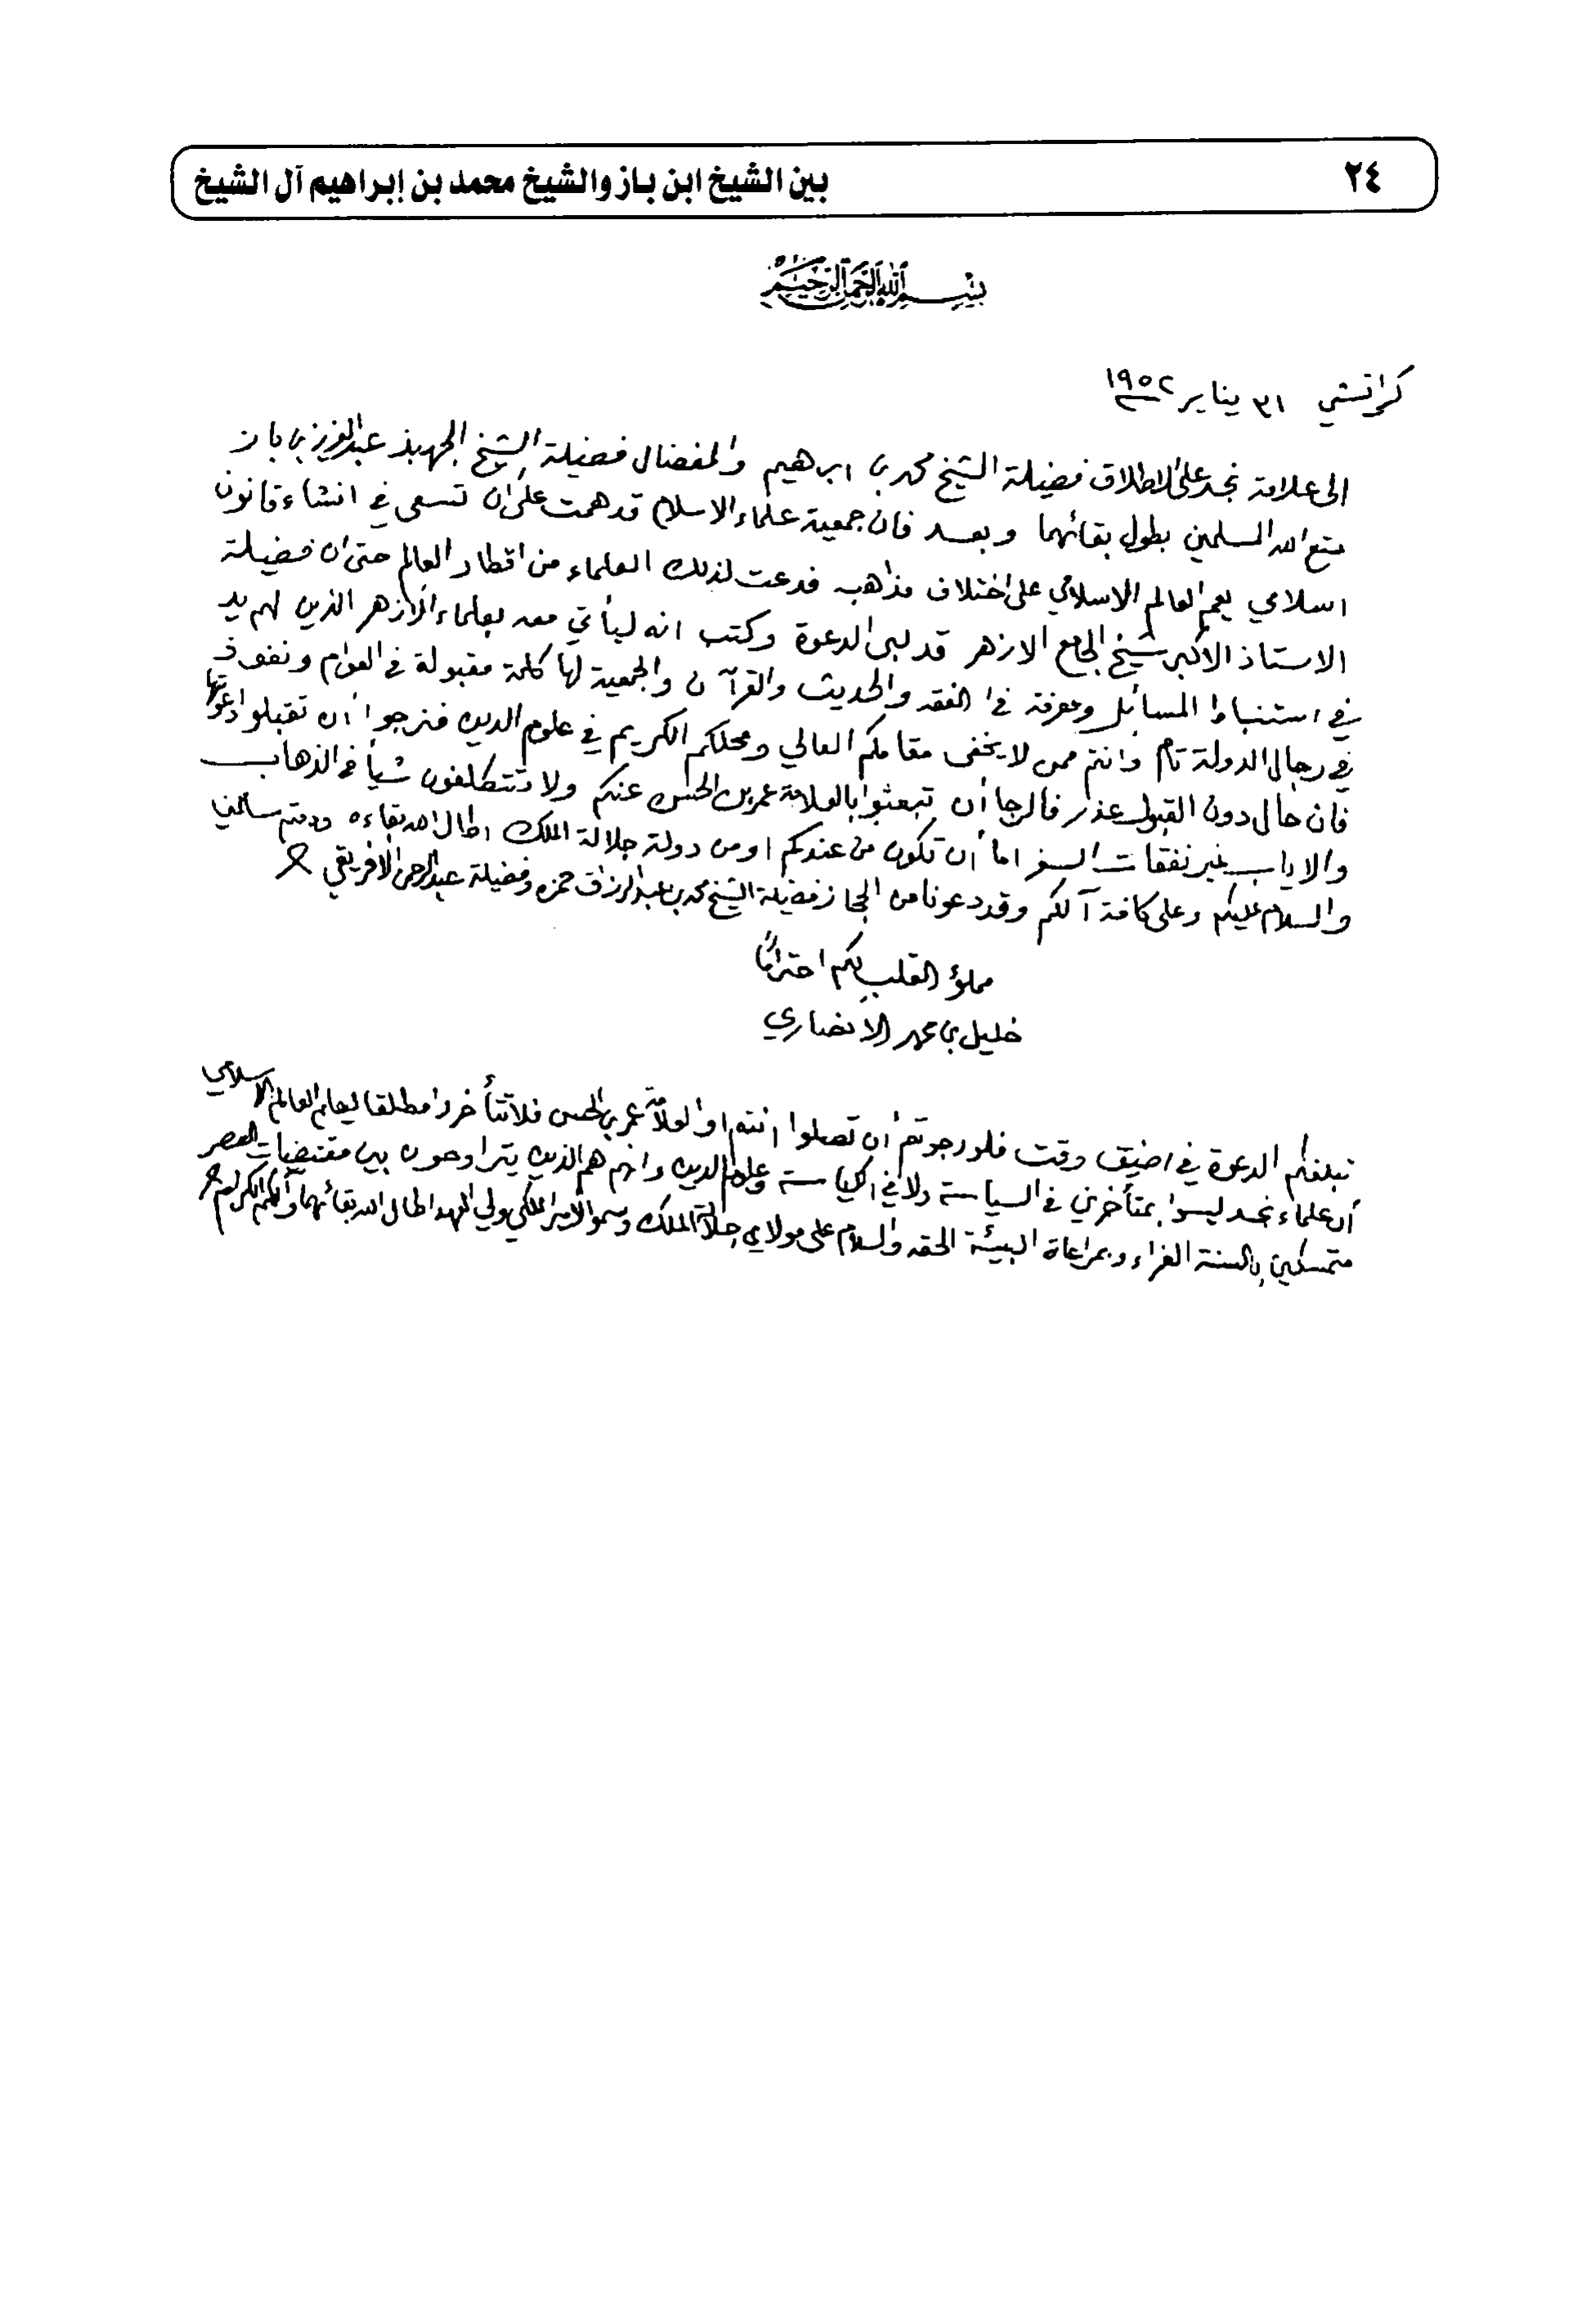 ٢٤
بين الشيخ ابن باز والشيخ محمد بن إبراهيم آل الشيخ
بسم الله الرحمن الرحيم
كراتشي ٣١ يناير ١٩٥٢
الى علامة نجد على الاطلاق فضيلة الشيخ محمد بن ابرهيم والمفضال فضيلة الشيخ الجهبذ عبدالعزيز بن باز
متع الله المسلمين بطول بقائهما وبعد فان جمعية علماء الاسلام قد همت على أن تسعى في انشاء قانون
اسلامي يعم العالم الاسلامي على اختلاف مذاهبه فدعت لذلك العلماء من اقطار العالم حتى ان فضيلة
الاستاذ الاكبر شيخ الجامع الازهر قد لبى الدعوة وكتب انه ليأتي معه بعلماء الازهر الذين لهم يد
في استنباط المسائل ومعرفة في الفقه والحديث والقرآن والجمعية لها كلمة مقبولة في العوام ونفوذ
في رجال الدولة تام وانتم ممن لا يخفى مقامكم العالي ومحلكم الكريم في علوم الدين فنرجوا أن تقبلوا دعوتها
فان حال دون القبول عذر فالرجا أن تبعثوا بالعلامة عمر بن الحسن عنكم ولا تتكلفون شيأ في الذهاب
والاياب غير نفقات السفر اما أن تكون من عندكم او من دولة جلالة الملك اطال الله بقاءه ودمتم سالمين
والسلام عليكم وعلى كافة آلكم وقد دعونا من الحجاز فضيلة الشيخ محمد بن عبد الرزاق حمزه وفضيلة عبدالرحمن الافريقي
مملؤ القلب لكم احتراما
خليل بن محمد الانصاري
تبلغكم الدعوة في اضيق وقت فلو رجوتم أن تصلوا انتم او العلامة عمر بن الحسن فلا تتأخروا مطلقا ليعلم العالم الاسلامي
أن علماء نجد ليسوا بمتأخرين في السياسة ولا في الكياسة وعلوم الدين وانهم هم الذين يتراوحون بين مقتضيات العصر
متمسكين بالسنة الغراء وبمراعاة البيئة الحقه والسلام على مولاي جلالة الملك وسمو الامير الملكي ولي العهد اطال الله بقائهما وآلكم الكرام